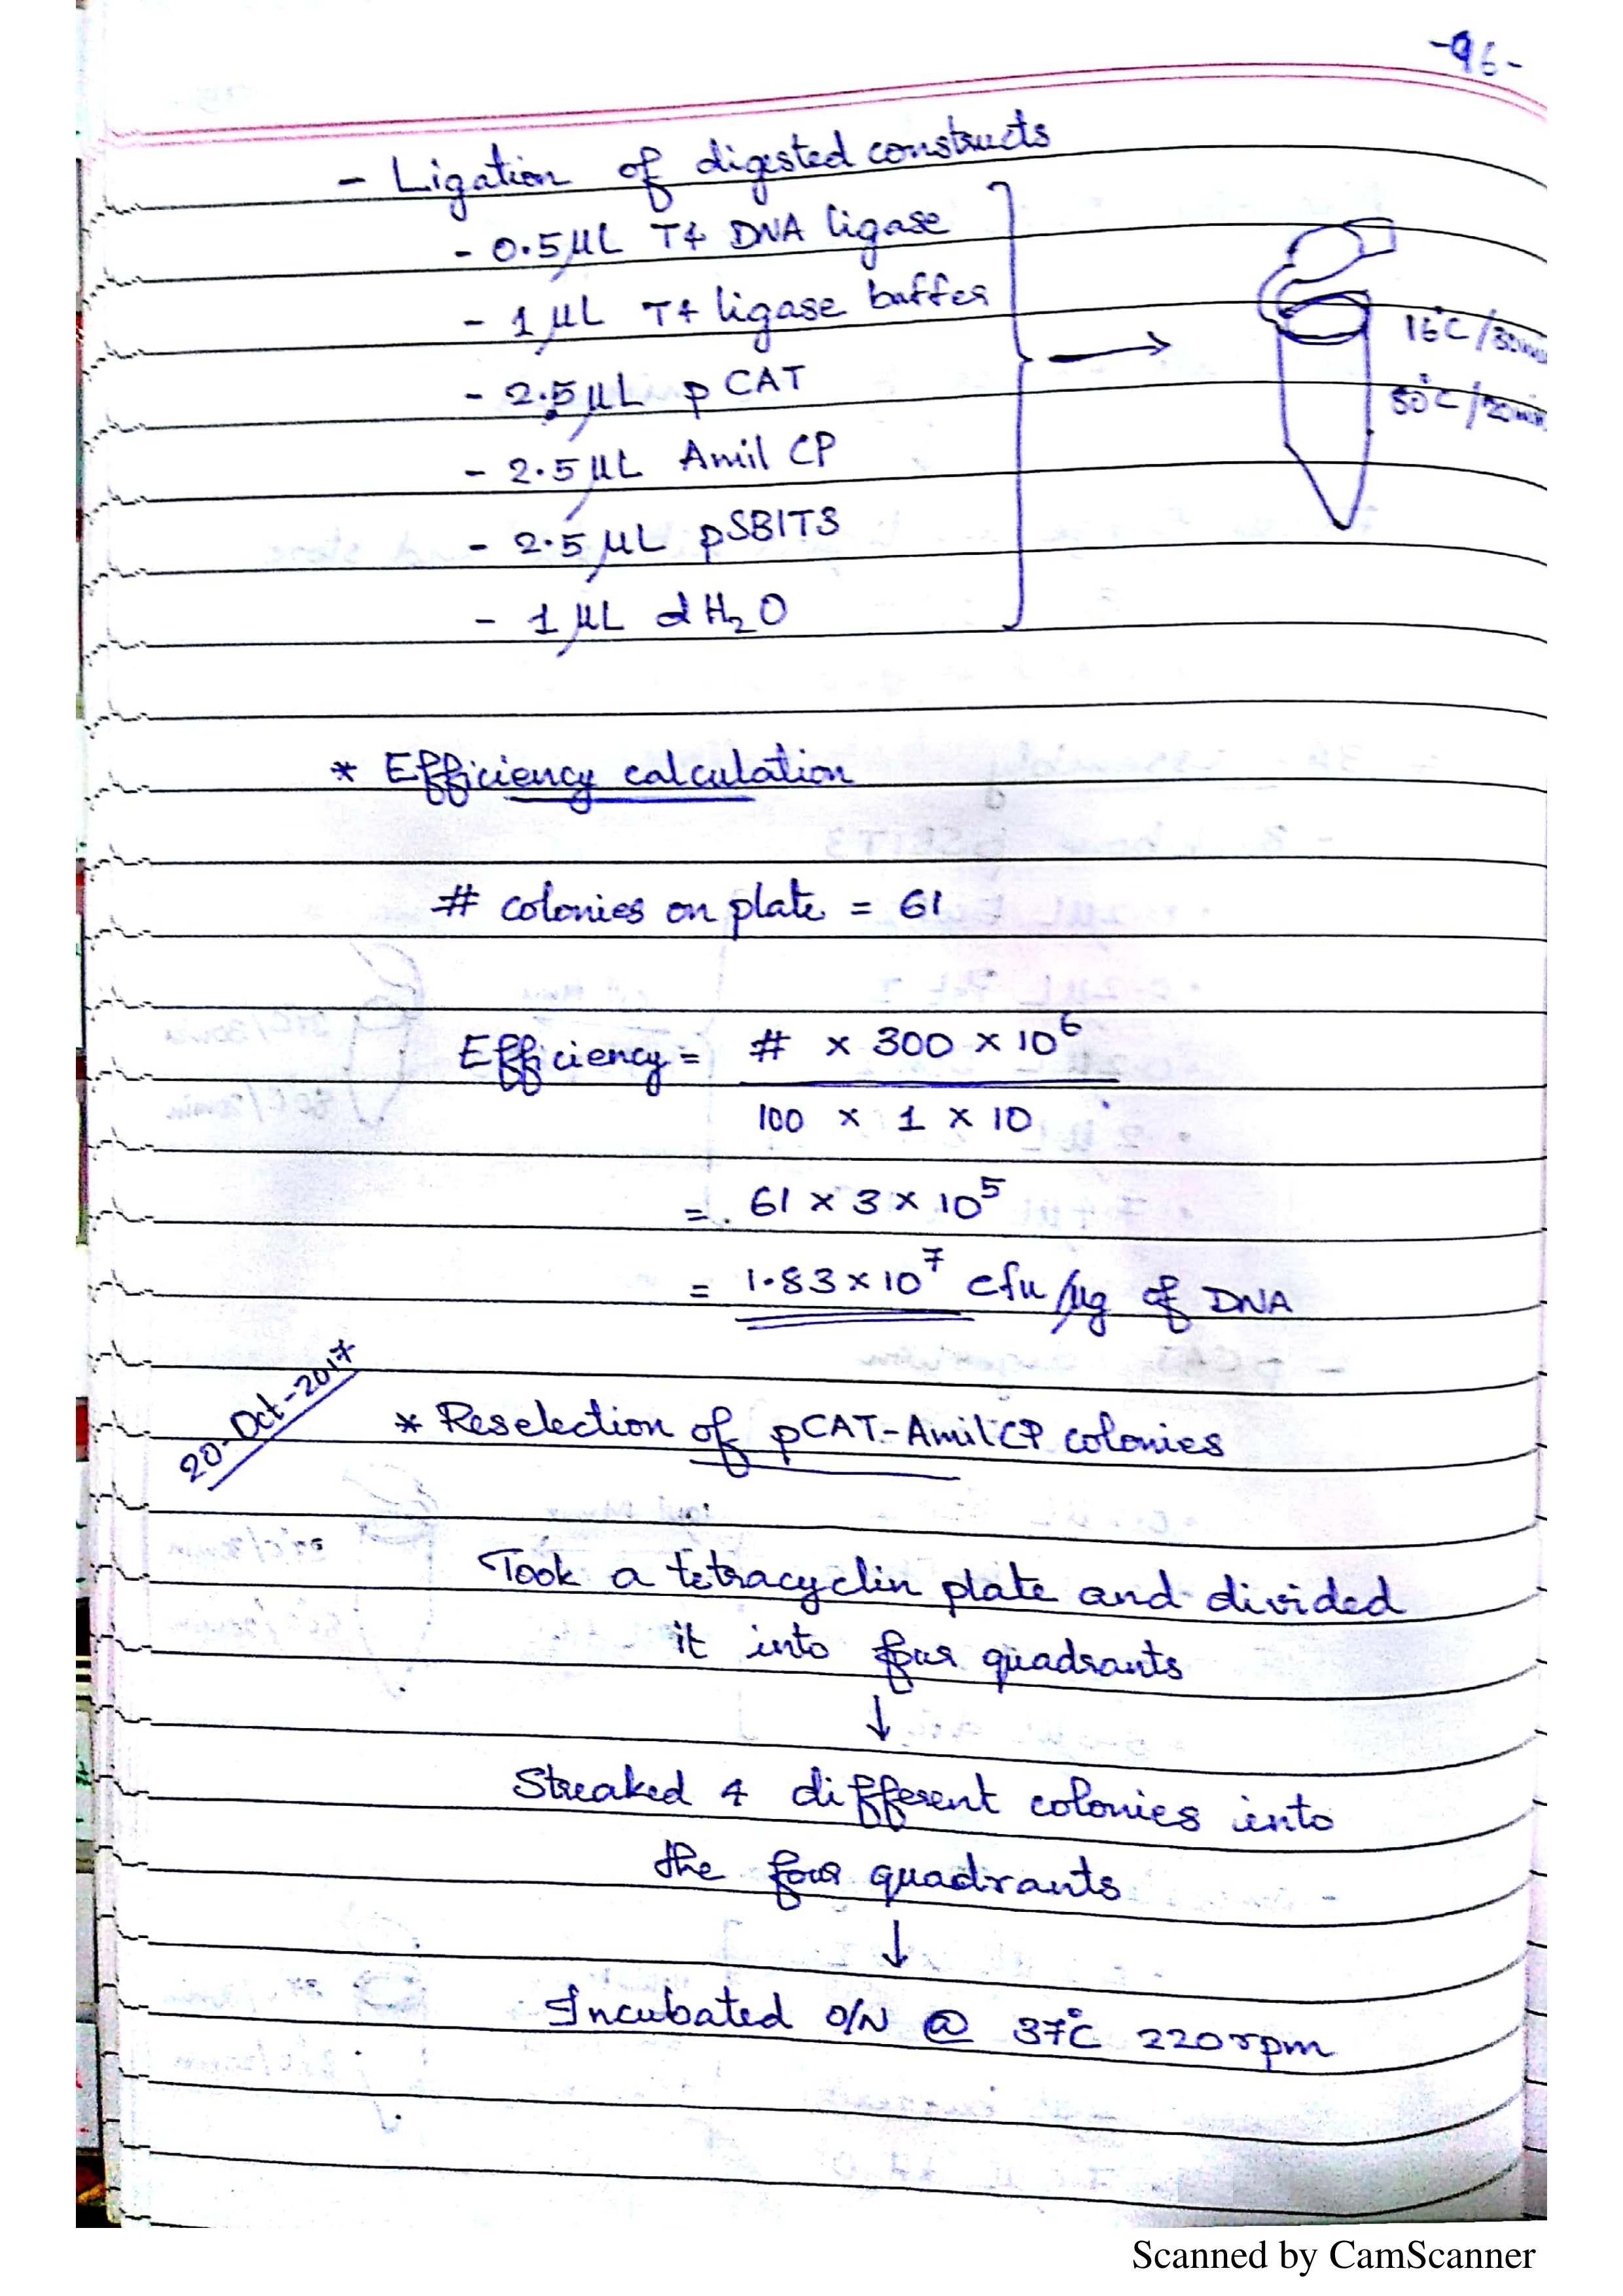 -96-
- Ligation of digested constructs
- 0.5 µL T4 DNA ligase
- 1 µL T4 ligase buffer
- 2.5 µL pCAT
- 2.5 µL Amil CP
- 2.5 µL pSBIT3
- 1 µL dH₂O
16°C/30min
80°C/20min
* Efficiency calculation
# colonies on plate = 61
Efficiency = # × 300 × 10⁶
100 × 1 × 10
= 61 × 3 × 10⁵
= 1.83 × 10⁷ cfu/µg of DNA
20-Oct-2017
* Reselection of pCAT-AmilCP colonies
Took a tetracyclin plate and divided
it into four quadrants
↓
Streaked 4 different colonies into
the four quadrants
↓
Incubated O/N @ 37°C 220rpm
Scanned by CamScanner